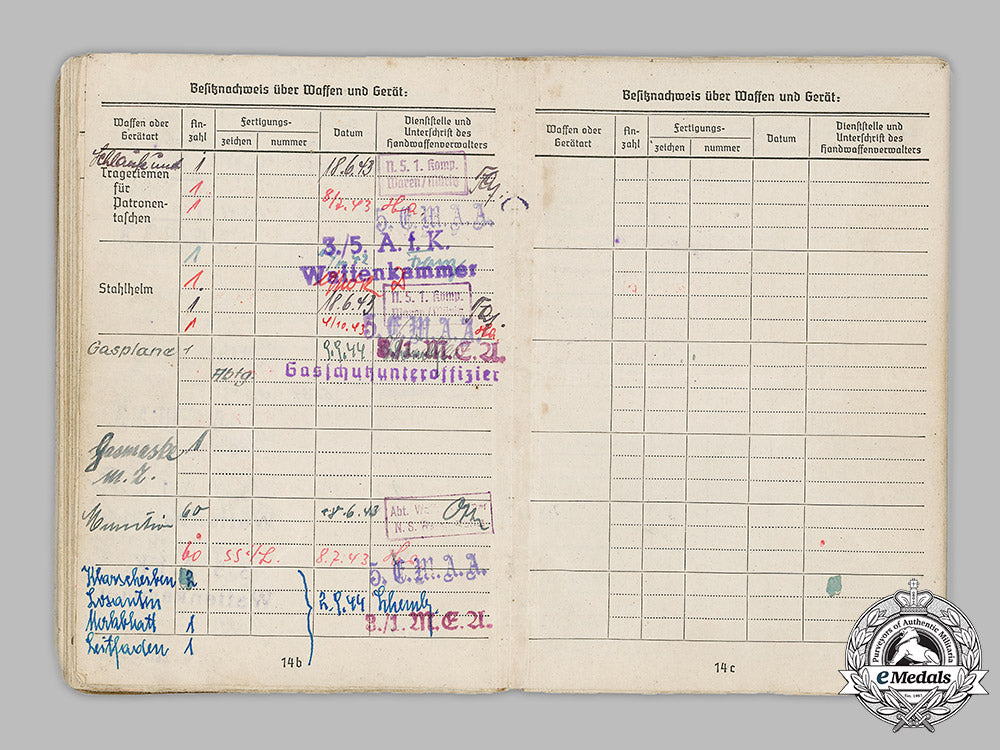 Besitznachweis über Waffen und Gerät:
Waffen oder Gerätart
An-zahl
Fertigungs-
zeichen
nummer
Datum
Dienststelle und Unterschrift des Handwaffenverwalters
1 18.6.43 N. S. 1. Komp.
Trageriemen 1
für 8/7.43 Ha
Patronen- 1
taschen
5. E.M.A.A.
3./5. A.f.K.
1
Waffenkammer
1.
Stahlhelm
1 18.6.43 N. S. 1. Komp.
1 4/10.43 5. E.M.A.A. Ha
Gasplane 1 9.9.44 8./1. M.E.A.
Abtg. Gasschutzunteroffizier
Gasmaske 1
m. Z.
Munition 60 18.6.43 Abt.
N. S.
60 SS./L. 8.7.43 Ha
5. E.M.A.A.
Klarscheiben 2
Losantin 2.9.44
Merkblatt 1 8./1. M.E.A.
Leitfaden 1
14b
Besitznachweis über Waffen und Gerät:
Waffen oder Gerätart
An-zahl
Fertigungs-
zeichen
nummer
Datum
Dienststelle und Unterschrift des Handwaffenverwalters
14c
Purveyors of Authentic Militaria
eMedals